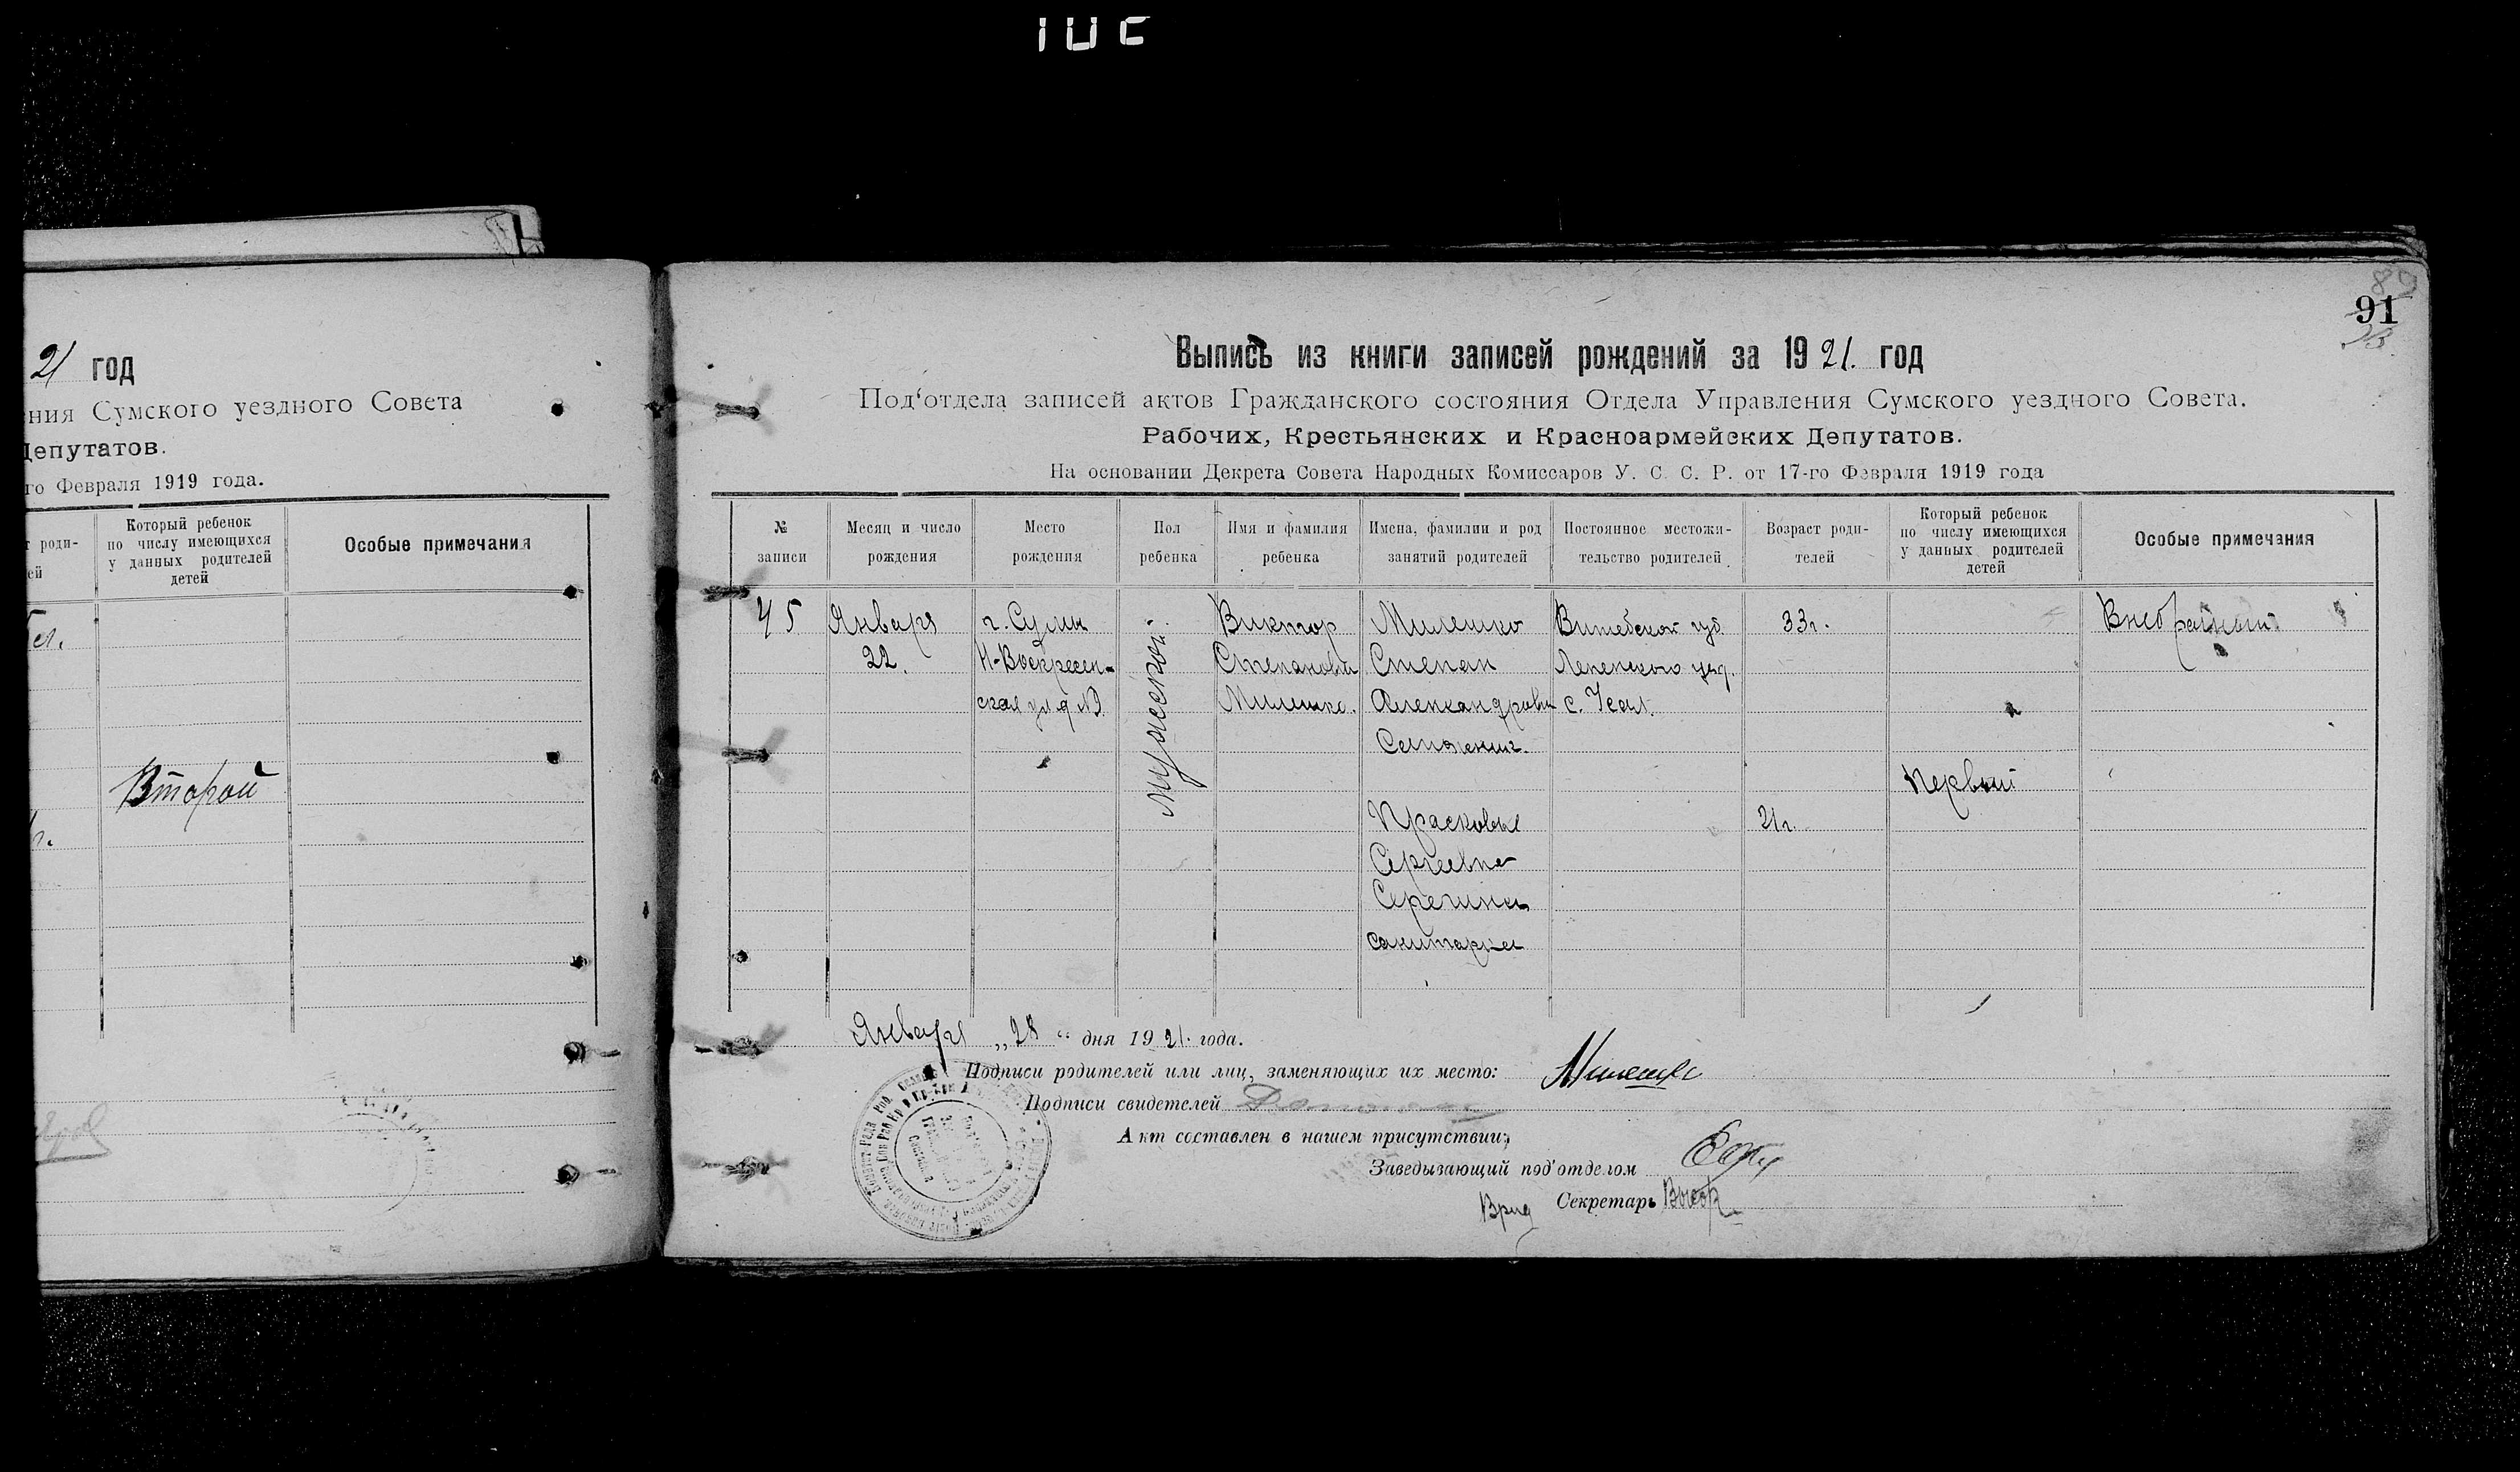 21 год
ния Сумского уездного Совета
Депутатов.
го Февраля 1919 года.
Который ребенок
по числу имеющихся
у данных родителей
детей
Особые примечания
Второй
91
Выпись из книги записей рождений за 1921. год
Под‘отдела записей актов Гражданского состояния Отдела Управления Сумского уездного Совета.
Рабочих, Крестьянских и Красноармейских Депутатов.
На основании Декрета Совета Народных Комиссаров У. С. С. Р. от 17-го Февраля 1919 года
№ записи
Месяц и число рождения
Место рождения
Пол ребенка
Имя и фамилия ребенка
Имена, фамилии и род занятий родителей
Постоянное местожи-
тельство родителей
Возраст роди-
телей
Который ребенок
по числу имеющихся
у данных родителей
детей
Особые примечания
45
Января
22.
г. Сумы
Н-Воскресен-
ская ул. д №
мужской
Виктор
Степанови
Милешко.
Милешко
Степан
Александрови
Прасковья
Сергеевна
Серегина
санитарка
Витебской губ.
Лепельского уезд.
с.
33 г.
21 г.
Первый
Внебрачный
Января „28“ дня 1921. года.
Подписи родителей или лиц, заменяющих их место: Милешко
Подписи свидетелей
Акт составлен в нашем присутствии:
Заведывающий под‘отделом
Врид Секретарь